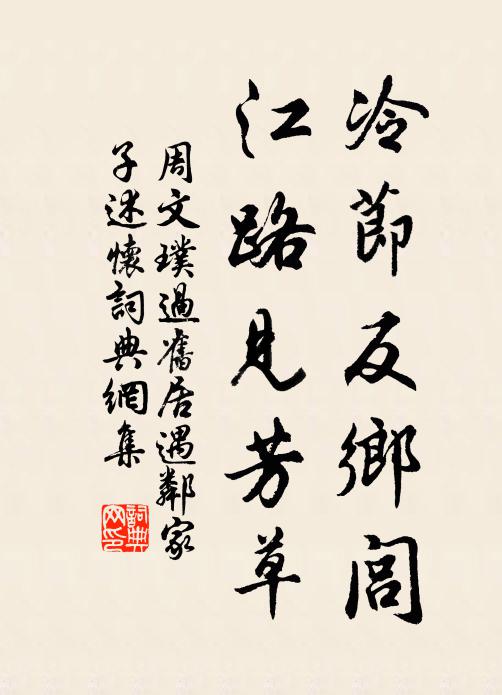 冷節反鄉閭
江路見芳草
周文璞過舊居遇鄰家
子述懷詞典網集
詞典
网印